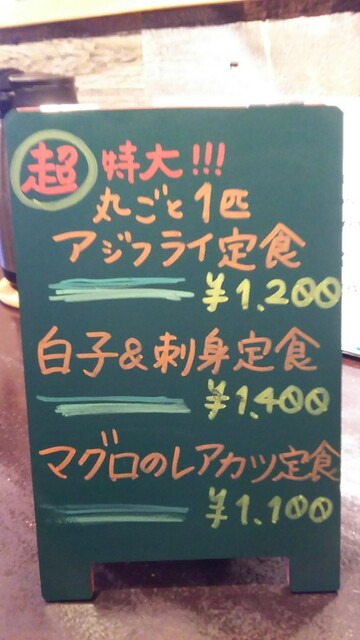 超 特大!!!
丸ごと1匹
アジフライ定食
¥1,200
白子&刺身定食
¥1,400
マグロのレアカツ定食
¥1,100